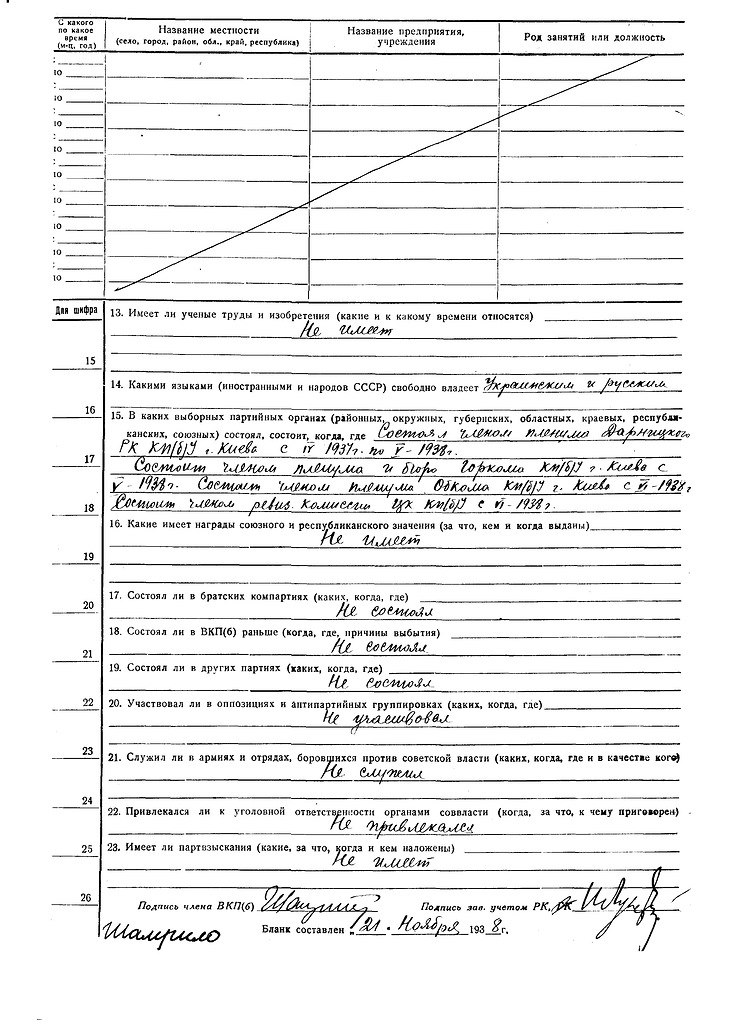 С какого по какое время (м-ц, год)
Название местности
(село, город, район, обл., край, республика)
Название предприятия, учреждения
Род занятий или должность
10
10
10
10
10
10
10
10
10
Для шифра
13. Имеет ли ученые труды и изобретения (какие и к какому времени относятся)
Не имеет
15
14. Какими языками (иностранными и народов СССР) свободно владеет Украинским и русским
16
15. В каких выборных партийных органах (районных, окружных, губернских, областных, краевых, республи-
канских, союзных) состоял, состоит, когда, где Состоял членом пленума Дарницкого
РК КП/б/У г. Киева с IV 1937г. по V - 1938г.
17
Состоит членом пленума и бюро Горкома КП/б/У г. Киева с
V - 1938г. Состоит членом пленума Обкома КП/б/У г. Киева с VI - 1938г
18
Состоит членом ревиз. Комиссии ЦК КП/б/У с VI - 1938г.
16. Какие имеет награды союзного и республиканского значения (за что, кем и когда выданы)
Не имеет
19
17. Состоял ли в братских компартиях (каких, когда, где)
20
Не состоял
18. Состоял ли в ВКП(б) раньше (когда, где, причины выбытия)
Не состоял
21
19. Состоял ли в других партиях (каких, когда, где)
Не состоял
22
20. Участвовал ли в оппозициях и антипартийных группировках (каких, когда, где)
Не участвовал
23
21. Служил ли в армиях и отрядах, боровшихся против советской власти (каких, когда, где и в качестве кого)
Не служил
24
22. Привлекался ли к уголовной ответственности органами соввласти (когда, за что, к чему приговорен)
Не привлекался
25
23. Имеет ли партвзыскания (какие, за что, когда и кем наложены)
Не имеет
26
Подпись члена ВКП(б) Подпись зав. учетом РК,
Шамрило
Бланк составлен „21" Ноября 1938г.